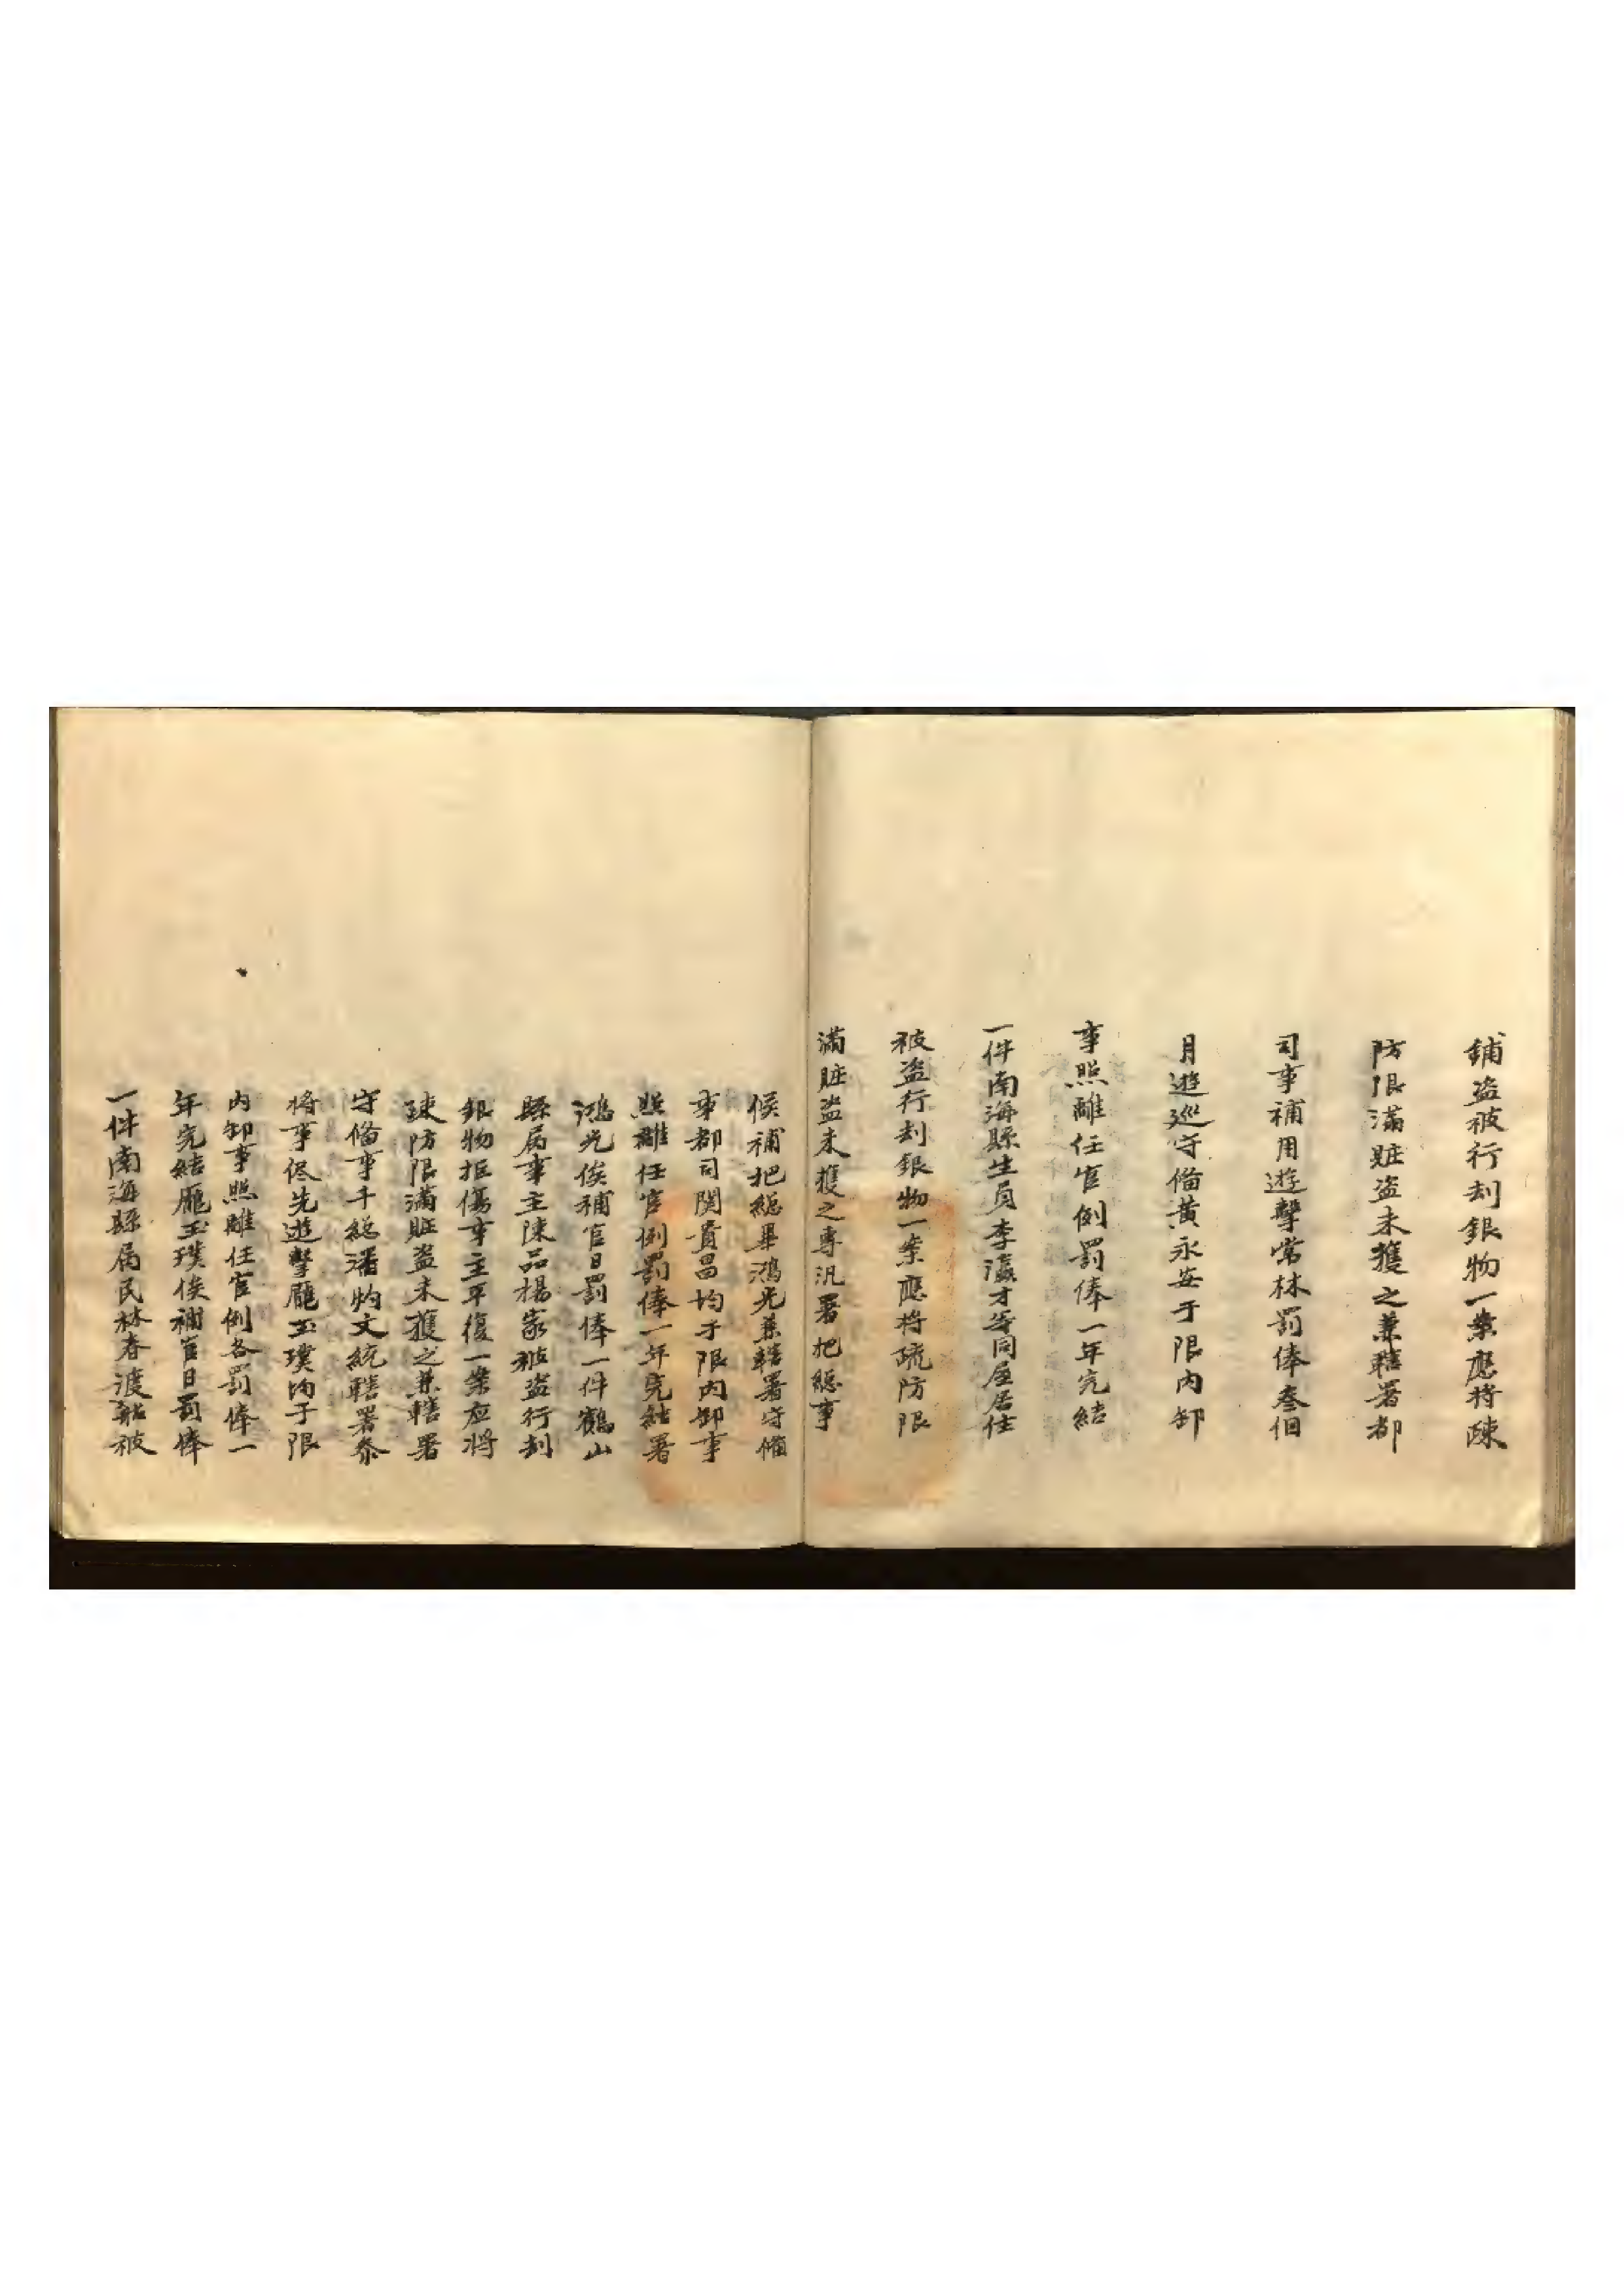 鋪盗被行刦銀物一案應將疎
防限滿賍盗未獲之兼轄署都
司事補用遊擊常林罰俸叁個
月遊巡守俻黄永安于限内卸
事照離任官例罰俸一年完結
一件南海縣生員李瀛才等同屋居住
被盗行刦銀物一案應將疏防限
滿賍盗未獲之專汛署把總事
候補把總畢鴻光兼轄署守備
事都司関貴昌均于限内卸事
照離任官例罰俸一年完結署
鴻光俟補官日罰俸一件鶴山
縣属事主陳品楊家被盗行刦
銀物拒傷事主平復一案应將
疎防限滿賍盗未獲之兼轄署
守俻事千總潘灼文統轄署叅
将事侭先遊擊龐玉璞均于限
内卸事照離任官例各罰俸一
年完結龐玉璞俟補官日罰俸
一件南海縣属民林春渡船被